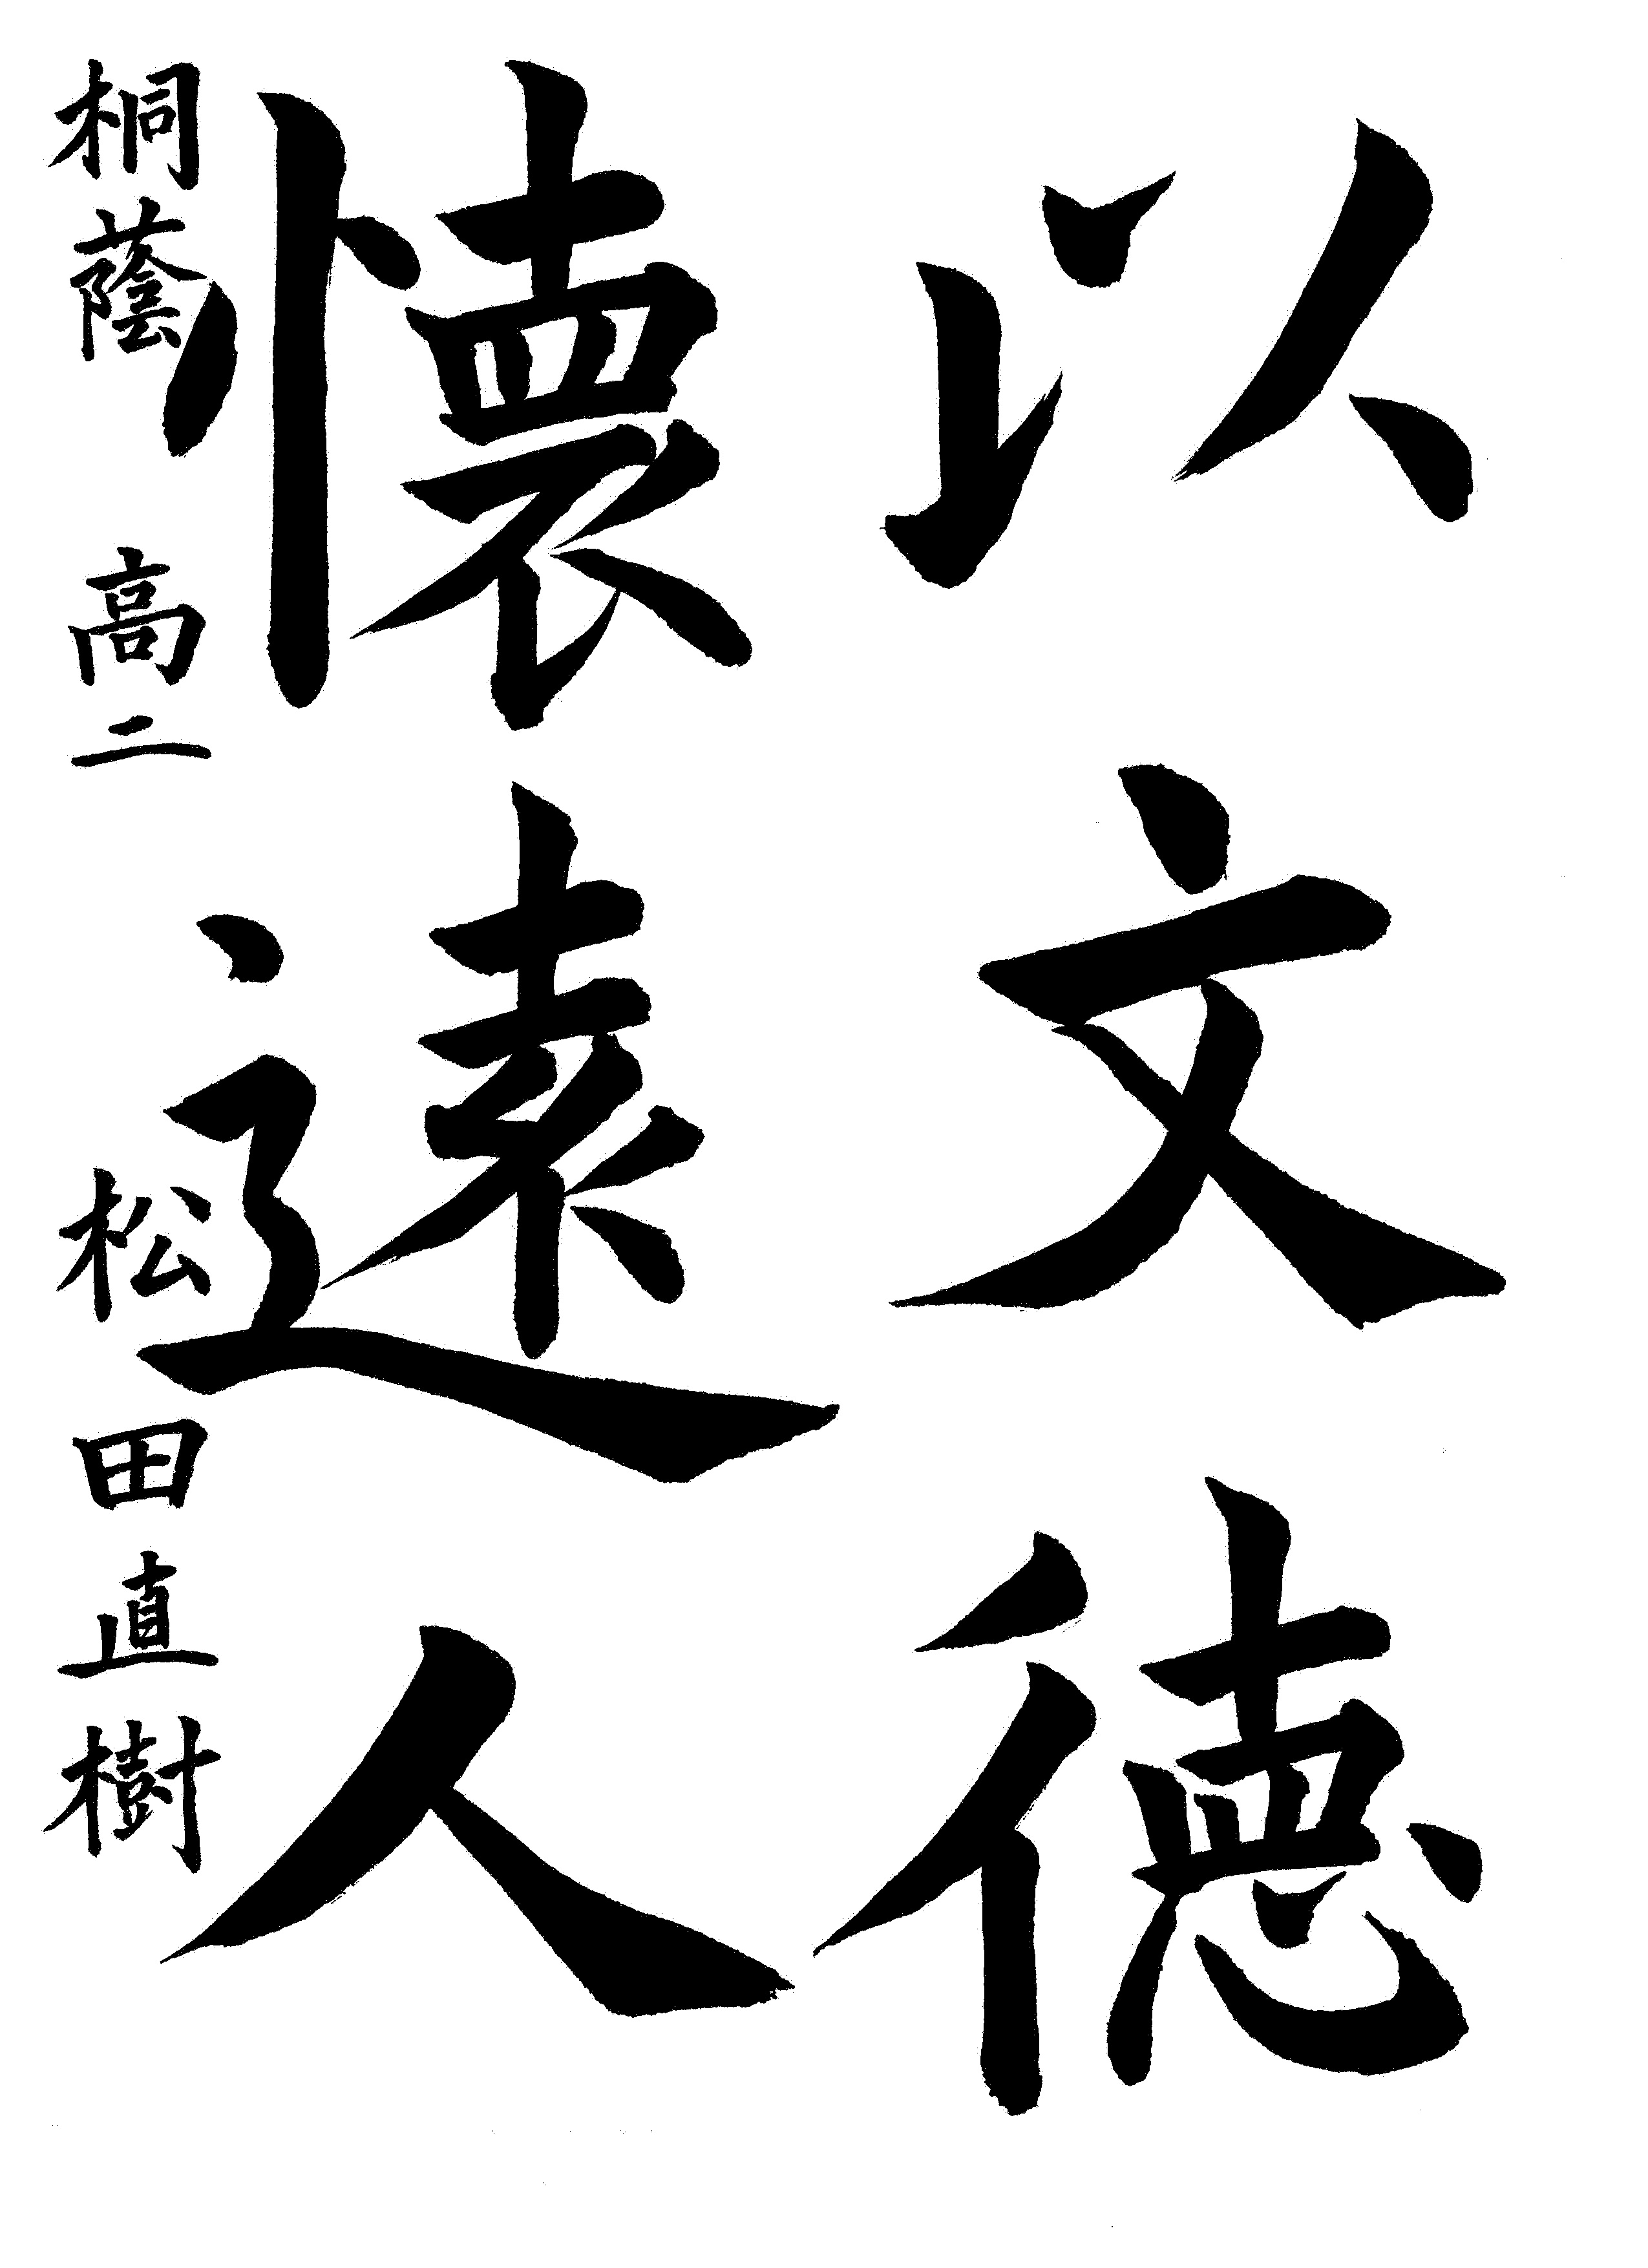 以文徳
懐遠人
桐蔭 高二 松田直樹